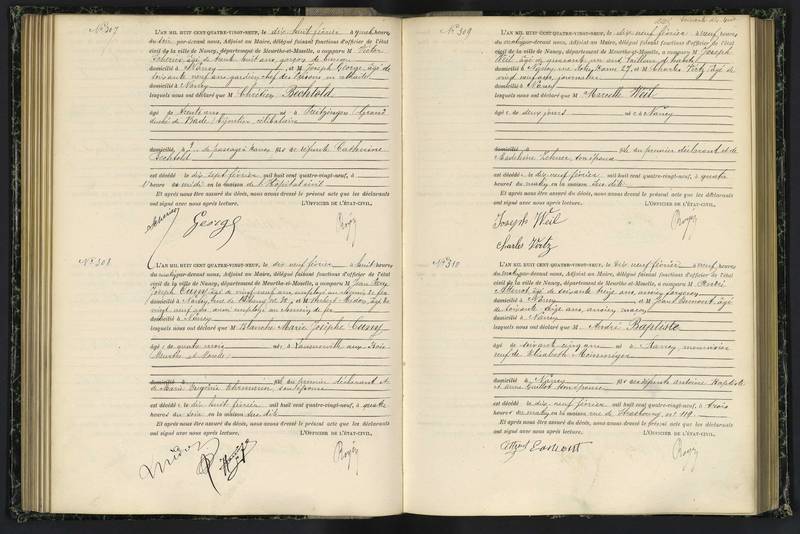 N° 307
L'AN MIL HUIT CENT QUATRE-VINGT-NEUF, le dix huit février à quatre heures
du soir par-devant nous, Adjoint au Maire, délégué faisant fonctions d'officier de l'état
civil de la ville de Nancy, département de Meurthe-et-Moselle, a comparu M Victor
âgé de trente huit ans, garçon de bureau
domicilié à Nancy, et M Joseph George, âgé de
soixante neuf ans gardien chef des Prisons en retraite
domicilié à Nancy
lesquels nous ont déclaré que M Chrétien Bechtold
âgé de trente ans né à Grand
duché de Bade, célibataire
domicilié à de passage à Nancy, fils de Catherine
Bechtold
est décédé le dix sept février mil huit cent quatre-vingt-neuf, à
l'heure de midi en la maison de l'Hôpital civil
Et après nous être assuré du décès, nous avons dressé le présent acte que les déclarants
ont signé avec nous après lecture. L'OFFICIER DE L'ÉTAT-CIVIL,
George
N° 308
L'AN MIL HUIT CENT QUATRE-VINGT-NEUF, le dix neuf février à huit heures
du matin par-devant nous, Adjoint au Maire, délégué faisant fonctions d'officier de l'état
civil de la ville de Nancy, département de Meurthe-et-Moselle, a comparu M Jean
Joseph Cuny âgé de vingt neuf ans, employé au chemin de fer
domicilié à Nancy, rue de et M
vingt neuf ans, aussi employé au chemin de fer
domicilié à Nancy
lesquels nous ont déclaré que M Blanche Marie Josèphe Cuny
âgée de quatre mois née à Laneuveville aux Bois
Meurthe et Moselle
domicilié à fille du premier déclarant et
de Marie Eugénie son épouse
est décédée le dix huit février mil huit cent quatre-vingt-neuf, à quatre
heures du soir en la maison sus dite
Et après nous être assuré du décès, nous avons dressé le présent acte que les déclarants
ont signé avec nous après lecture. L'OFFICIER DE L'ÉTAT-CIVIL,
N° 309
L'AN MIL HUIT CENT QUATRE-VINGT-NEUF, le dix neuf février à neuf heures
du matin par-devant nous, Adjoint au Maire, délégué faisant fonctions d'officier de l'état
civil de la ville de Nancy, département de Meurthe-et-Moselle, a comparu M Joseph
Weil âgé de quarante un ans tailleur d'habits
domicilié à Nancy, rue 27, et M Charles âgé de
vingt neuf ans, journalier
domicilié à Nancy
lesquels nous ont déclaré que M Marcelle Weil
âgée de deux jours née à Nancy
domicilié à fille du premier déclarant et de
Madeleine son épouse
est décédée le dix neuf février mil huit cent quatre-vingt-neuf, à quatre
heures du matin en la maison sus dite
Et après nous être assuré du décès, nous avons dressé le présent acte que les déclarants
ont signé avec nous après lecture. L'OFFICIER DE L'ÉTAT-CIVIL,
Joseph Weil
Charles
N° 310
L'AN MIL HUIT CENT QUATRE-VINGT-NEUF, le dix neuf février à neuf heures
du matin par-devant nous, Adjoint au Maire, délégué faisant fonctions d'officier de l'état
civil de la ville de Nancy, département de Meurthe-et-Moselle, a comparu M
âgé de soixante treize ans, ancien
domicilié à Nancy et M âgé
de soixante dix ans, ancien maçon
domicilié à Nancy
lesquels nous ont déclaré que M André Baptiste
âgé de soixante cinq ans né à Nancy, menuisier
veuf de Elisabeth
domicilié à Nancy fils des défunts Antoine Baptiste
et Anne Guillot son épouse
est décédé le dix neuf février mil huit cent quatre-vingt-neuf, à trois
heures du matin en la maison rue de Strasbourg, n° 119
Et après nous être assuré du décès, nous avons dressé le présent acte que les déclarants
ont signé avec nous après lecture. L'OFFICIER DE L'ÉTAT-CIVIL,